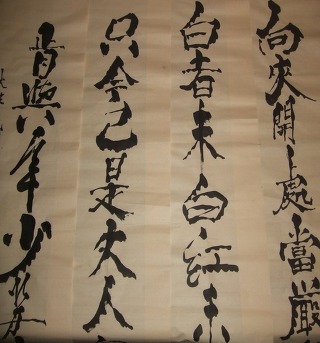 向來開處當嚴
白者未白紅未
只今已是丈人
肯與年少爭